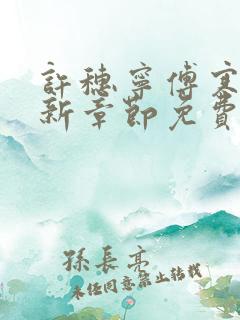 許穗寧傅寒
新章節免費
孫長亮
未經同意禁止轉載